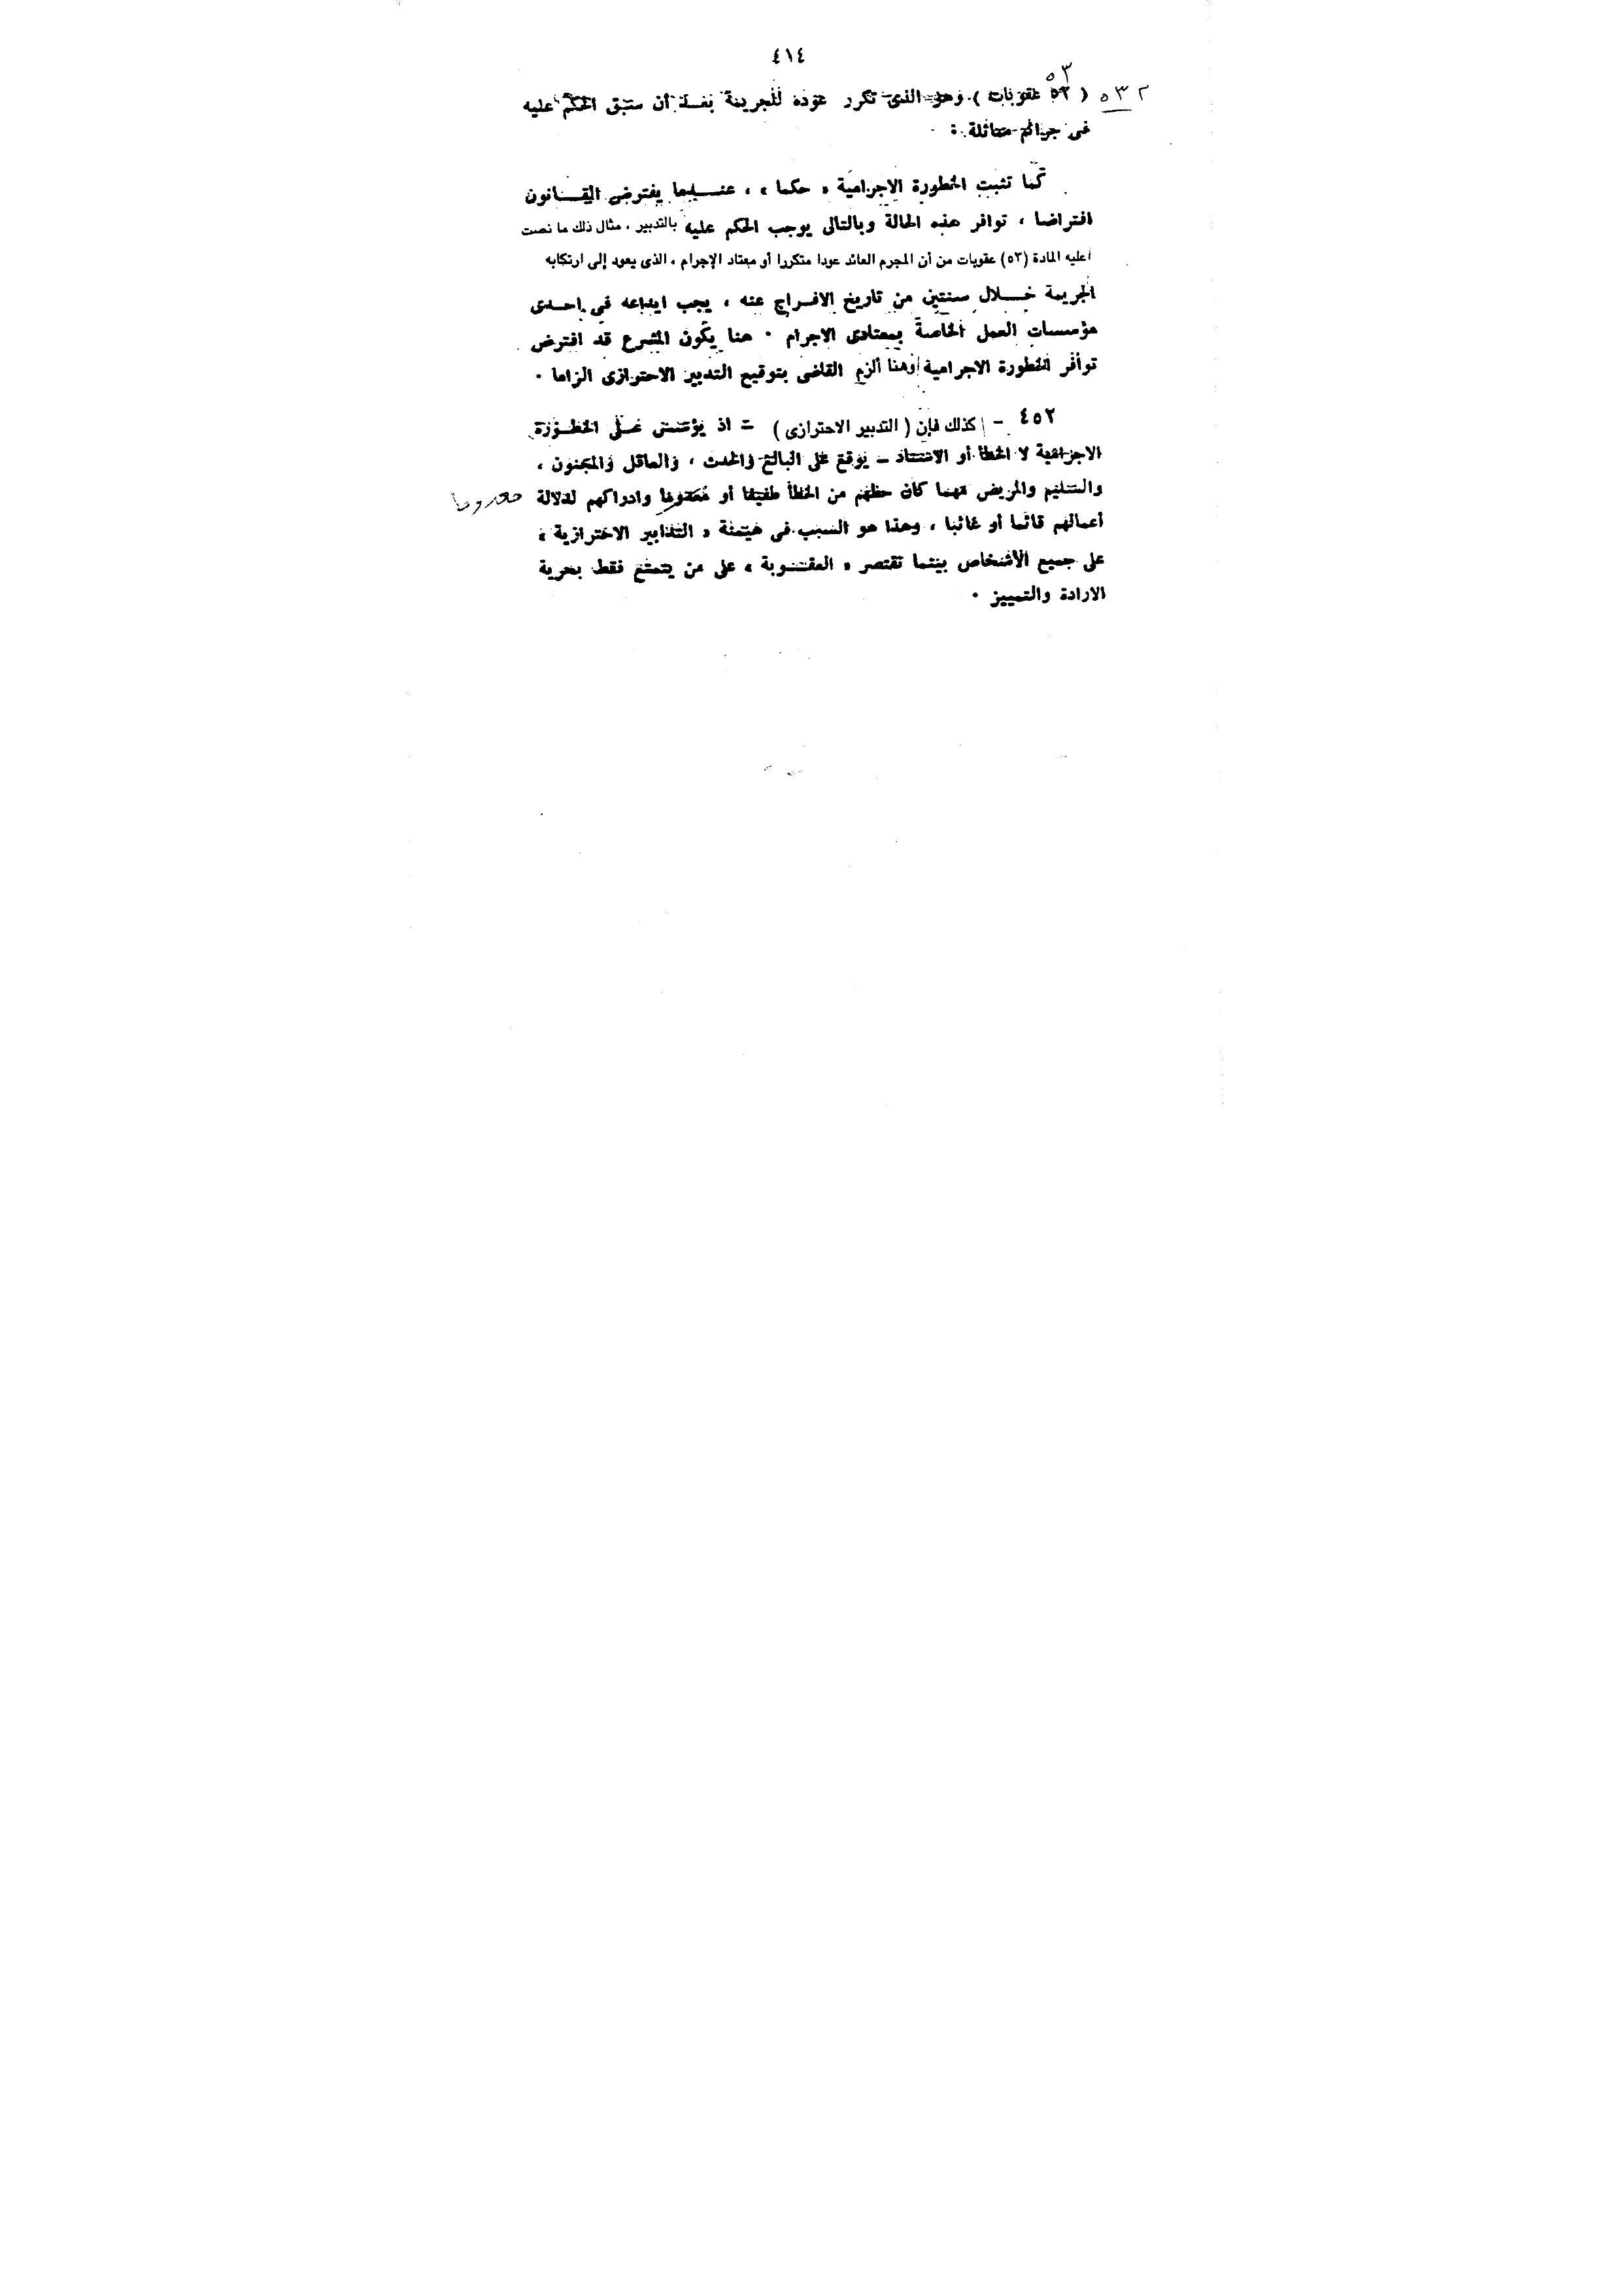 ٤١٤
٥٣
( ٥٢ عقوبات ) وهو الذى تكرر عوده للجريمة بعد أن سبق الحكم عليه
فى جرائم متماثلة .
كما تثبت الخطورة الاجرامية « حكما » ، عندما يفترض القانون
افتراضا ، توافر هذه الحالة وبالتالى يوجب الحكم عليه بالتدبير ، مثال ذلك ما نصت
عليه المادة (٥٣) عقوبات من أن المجرم العائد عودا متكررا أو معتاد الإجرام ، الذى يعود إلى ارتكابه
الجريمة خلال سنتين من تاريخ الافراج عنه ، يجب ايداعه فى احدى
مؤسسات العمل الخاصة بمعتادى الاجرام . هنا يكون المشرع قد افترض
توافر الخطورة الاجرامية وهنا ألزم القاضى بتوقيع التدبير الاحترازى الزاما .
٤٥٢ - كذلك فإن ( التدبير الاحترازى ) - اذ يؤسس على الخطورة
الاجرامية لا الخطأ أو الاسناد - يوقع على البالغ والحدث ، والعاقل والمجنون ،
والسليم والمريض مهما كان حظهم من الخطأ طفيفا أو معدوما وادراكهم لدلالة
أعمالهم قائما أو غائبا ، وهذا هو السبب فى هيمنة « التدابير الاحترازية »
على جميع الأشخاص بينما تقتصر « العقوبة » على من يتمتع فقط بحرية
الارادة والتمييز .